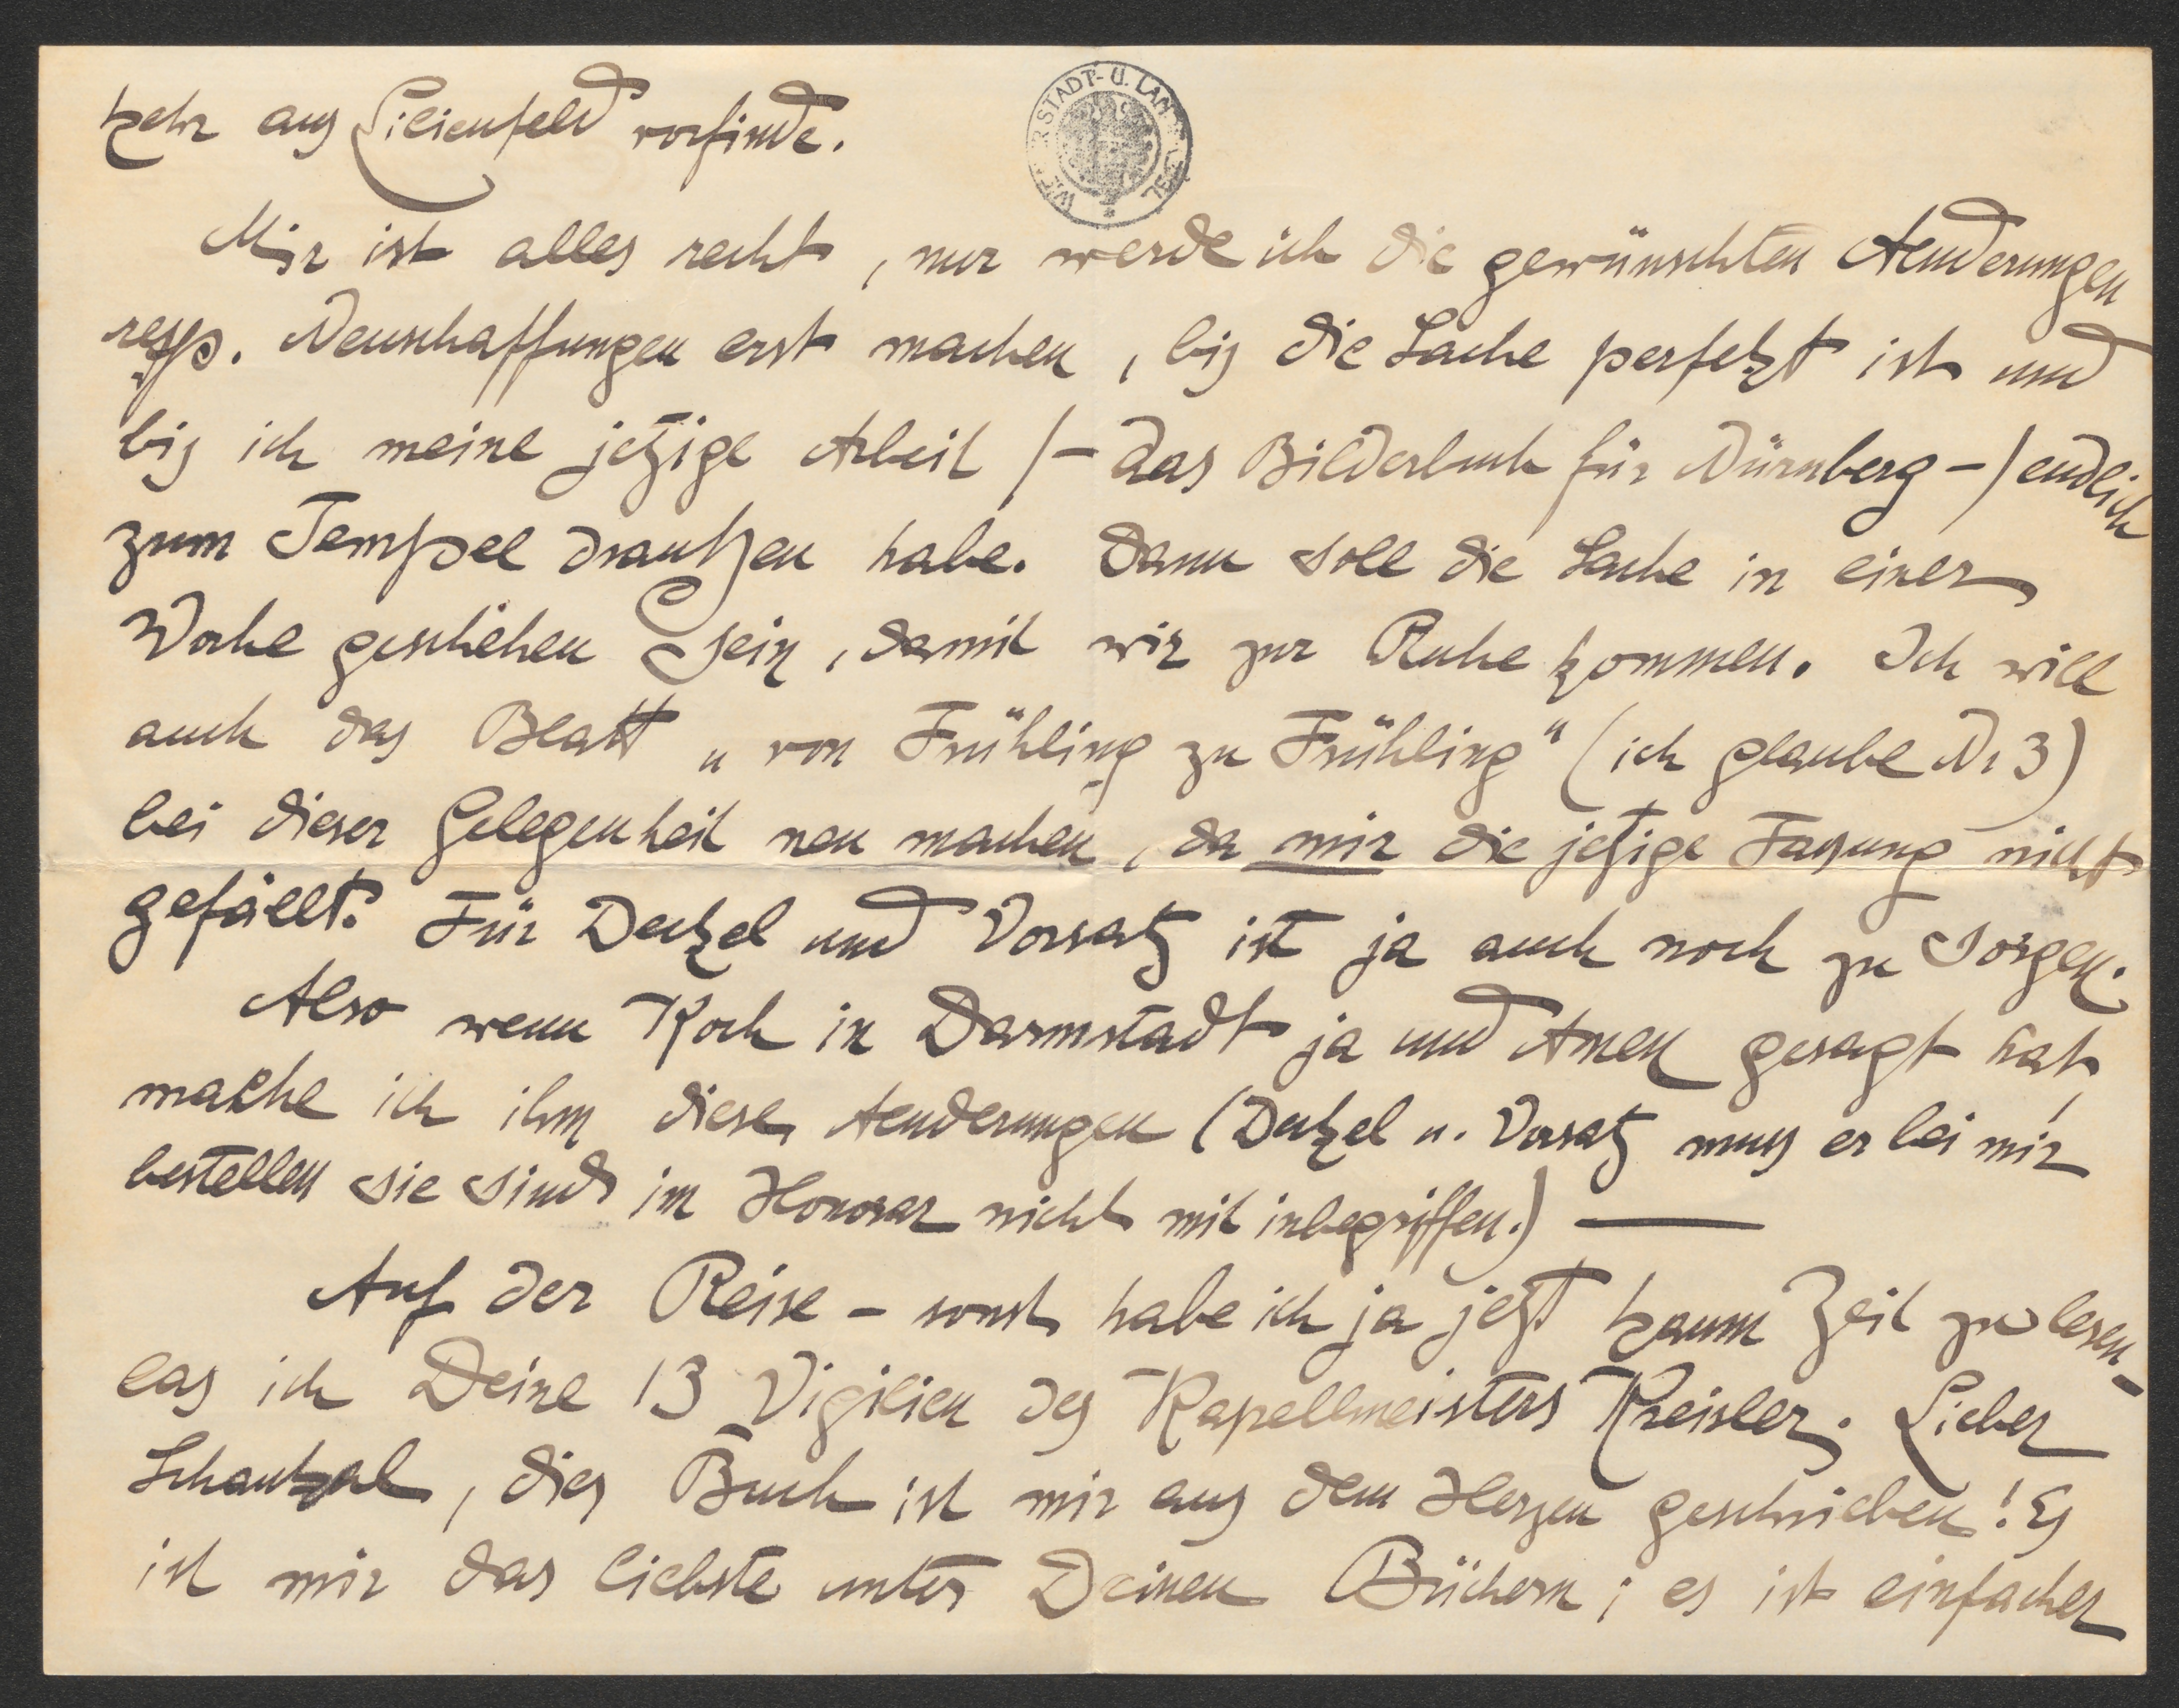 kehr aus Lilienfeld vorfinde.
Mir ist alles recht, nur werde ich die gewünschten Aenderungen
resp. Neuschaffungen erst machen, bis die Sache perfekt ist und
bis ich meine jetzige Arbeit /– das Bilderbuch für Nürnberg –/ endlich
zum Tempel draußen habe. Dann soll die Sache in einer
Woche geschehen sein, damit wir zur Ruhe kommen. Ich will
auch das Blatt „von Frühling zu Frühling“ (ich glaube Nr 3)
bei dieser Gelegenheit neu machen, da mir die jetzige Fassung nicht
gefällt. Für Deckel und Vorsatz ist ja auch noch zu sorgen.
Also wenn Koch in Darmstadt ja und Amen gesagt hat,
mache ich ihm diese Aenderungen (Deckel u. Vorsatz muss er bei mir
bestellen sie sind im Honorar nicht mit inbegriffen.) —
Auf der Reise – sonst habe ich ja jetzt kaum Zeit zu lesen –
las ich Deine 13 Vigilien des Kapellmeisters Kreisler. Lieber
Schaukal, dies Buch ist mir aus dem Herzen geschrieben! Es
ist mir das liebste unter Deinen Büchern; es ist einfacher
WIENER STADT- U. LAN BIBL